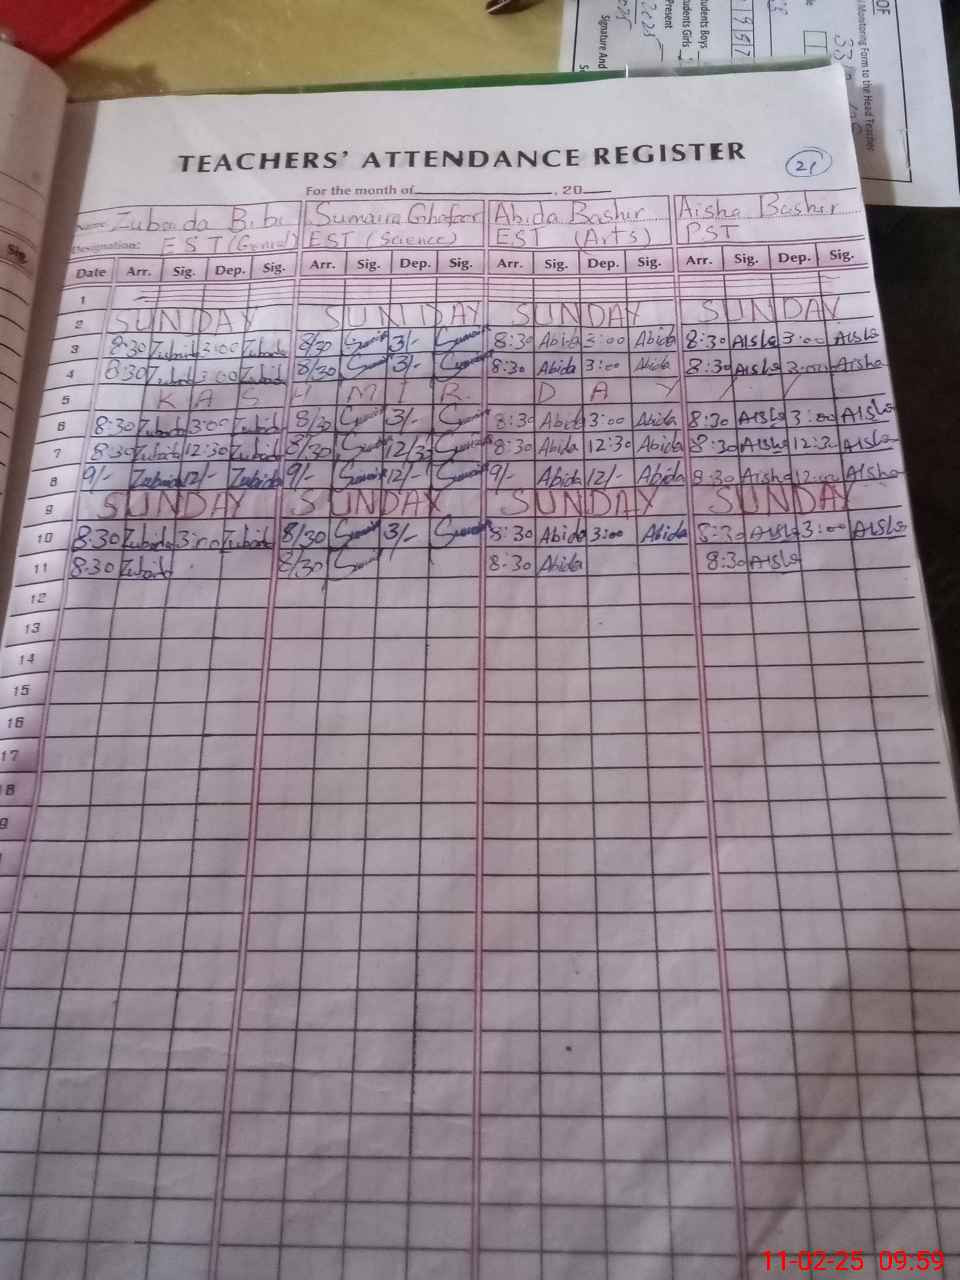 TEACHERS' ATTENDANCE REGISTER
21
For the month of , 20
Name: Zubaida Bibi Sumaira Ghafoor Abida Bashir Aisha Bashir
Designation: EST (General) EST (Science) EST (Arts) PST
Date Arr. Sig. Dep. Sig. Arr. Sig. Dep. Sig. Arr. Sig. Dep. Sig. Arr. Sig. Dep. Sig.
1
2 SUNDAY SUNDAY SUNDAY SUNDAY
3 8:30 Zubaid 3:00 Zubaid 8/30 3/- 8:30 Abida 3:00 Abida 8:30 Aisha 3:00 Aisha
4 8:30 Zubaid 3:00 Zubaid 8/30 3/- 8:30 Abida 3:00 Abida 8:30 Aisha 3:00 Aisha
5 KASHMIR DAY
6 8:30 Zubaid 3:00 Zubaid 8/30 3/- 8:30 Abida 3:00 Abida 8:30 Aisha 3:00 Aisha
7 8:30 Zubaid 12:30 Zubaid 8/30 12/30 8:30 Abida 12:30 Abida 8:30 Aisha 12:3 Aisha
8 9/- Zubaida 12/- Zubaida 9/- 12/- 9/- Abida 12/- Abida 8:30 Aisha 12:00 Aisha
9 SUNDAY SUNDAY SUNDAY SUNDAY
10 8:30 Zubaida 3:00 Zubaida 8/30 3/- 8:30 Abida 3:00 Abida 8:30 Aisha 3:00 Aisha
11 8:30 Zubaid 8/30 8:30 Abida 8:30 Aisha
12
13
14
15
16
17
8
9
Sig.
OF
Monitoring Form to the Head Teacher
1997
Students Boys
Students Girls
Present
2025
Signature And
11-02-25 09:59